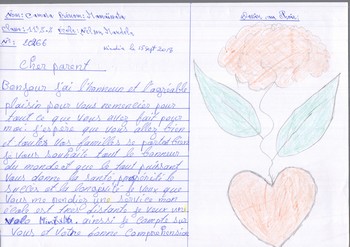 Nom: Camara Prénom: Maminata
Classe: 11ème École: Nelson Mandela
N°: 10266
Kindia le 15 sept 2018
Cher parent
Dessin au Choix:
Bonjour j'ai l'honneur et l'agréable
plaisir pour vous remercier pour
tout ce que vous avez fait pour
moi. j'espère que vous allez bien
et toutes vos familles se portent bien
je vous souhaite tout le bonheur
du monde et que le tout puissant
vous donne la santé, prospérité le
succès et la longévité je veux que
vous me rendiez un service mon
école est trop distante je veux un
Vélo ainsi je compte sur
vous et votre bonne compréhension